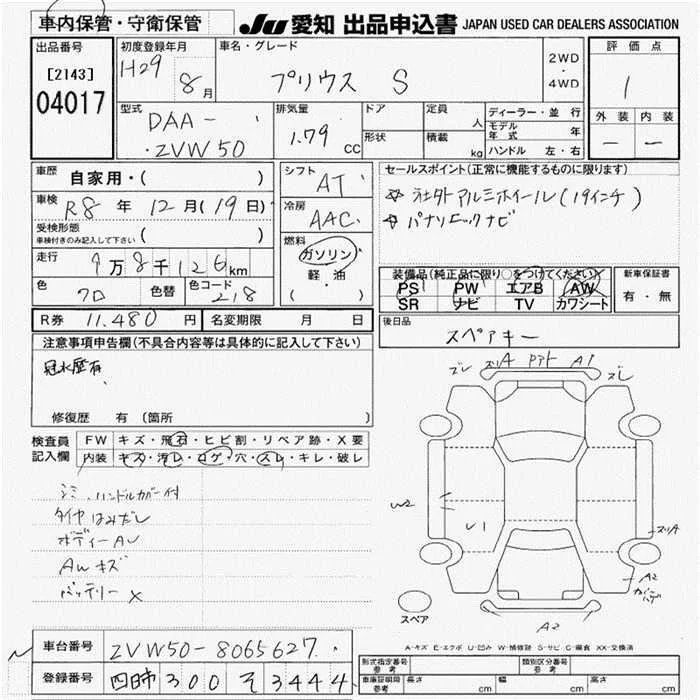 車内保管・守衛保管
JU 愛知 出品申込書 JAPAN USED CAR DEALERS ASSOCIATION
出品番号
[2143]
04017
初度登録年月
H29 8月
車名・グレード
プリウス S
2WD
・
4WD
評価点
1
外装 内装
― ―
型式
DAA-
ZVW50
排気量
1.79 cc
ドア
形状
定員 人
積載 kg
ディーラー・並行
モデル年式 年
ハンドル 左・右
車歴
自家用・( )
車検
R8年12月(19日)
受検形態
車検付きのみ記入して下さい ( )
走行
千km
色
クロ
色替
色コード
218
シフト
AT
冷房
AAC
燃料
ガソリン
軽・油
( )
セールスポイント(正常に機能するものに限ります)
☆社外アルミホイール(19インチ)
☆パナソニックナビ
装備品(純正品に限り○をつけてください)
PS PW エアB AW
SR ナビ TV カワシート
新車保証書
有・無
R券 11,480円
名変期限 月 日
後日品
スペアキー
注意事項申告欄(不具合内容等は具体的に記入して下さい)
冠水歴有
修復歴 有 (箇所 )
検査員
記入欄
FW キズ・飛石・ヒビ割・リペア跡・X要
内装 キズ・汚レ・コゲ・穴・スレ・キレ・破レ
シミ、ハンドルカバー付
タイヤはみだし
ボディーAU
AWキズ
バッテリーX
ズレ スリA FアンA A1 ズレ
W2
U1
スリA
A2
A2
スペア
A-キズ E-エクボ U-凹み W-補修跡 S-サビ C-腐食 XX-交換済
車台番号
ZVW50-8065627
登録番号
四日市 300 そ 3444
形式指定番号
参考
類別区分番号
参考
車庫証明用
参考
長さ cm 幅 cm 高さ cm